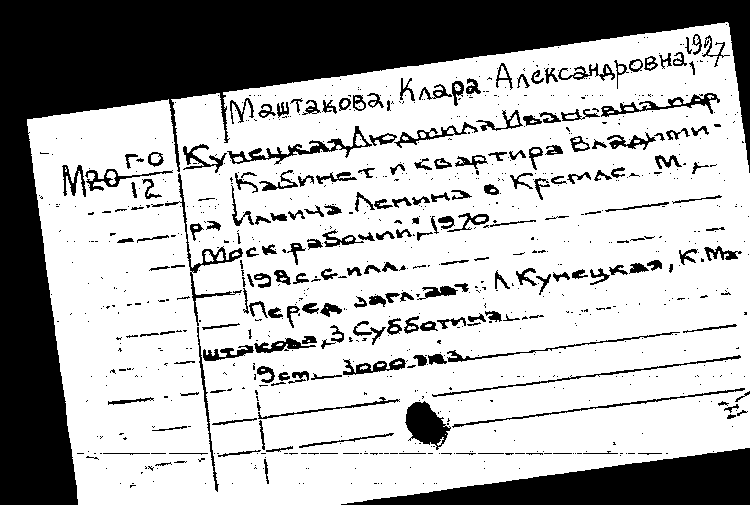 Маштакова, Клара Александровна, 1927
Кунецкая, Людмила Ивановна и др
М20 Г-О
12
Кабинет и квартира Владими-
ра Ильича Ленина в Кремле. М.,
"Моск. рабочий", 1970.
198 с. с илл.
Перед загл. авт.: Л. Кунецкая, К. Ма-
штакова, З. Субботина.
9 ст. 3000 экз.